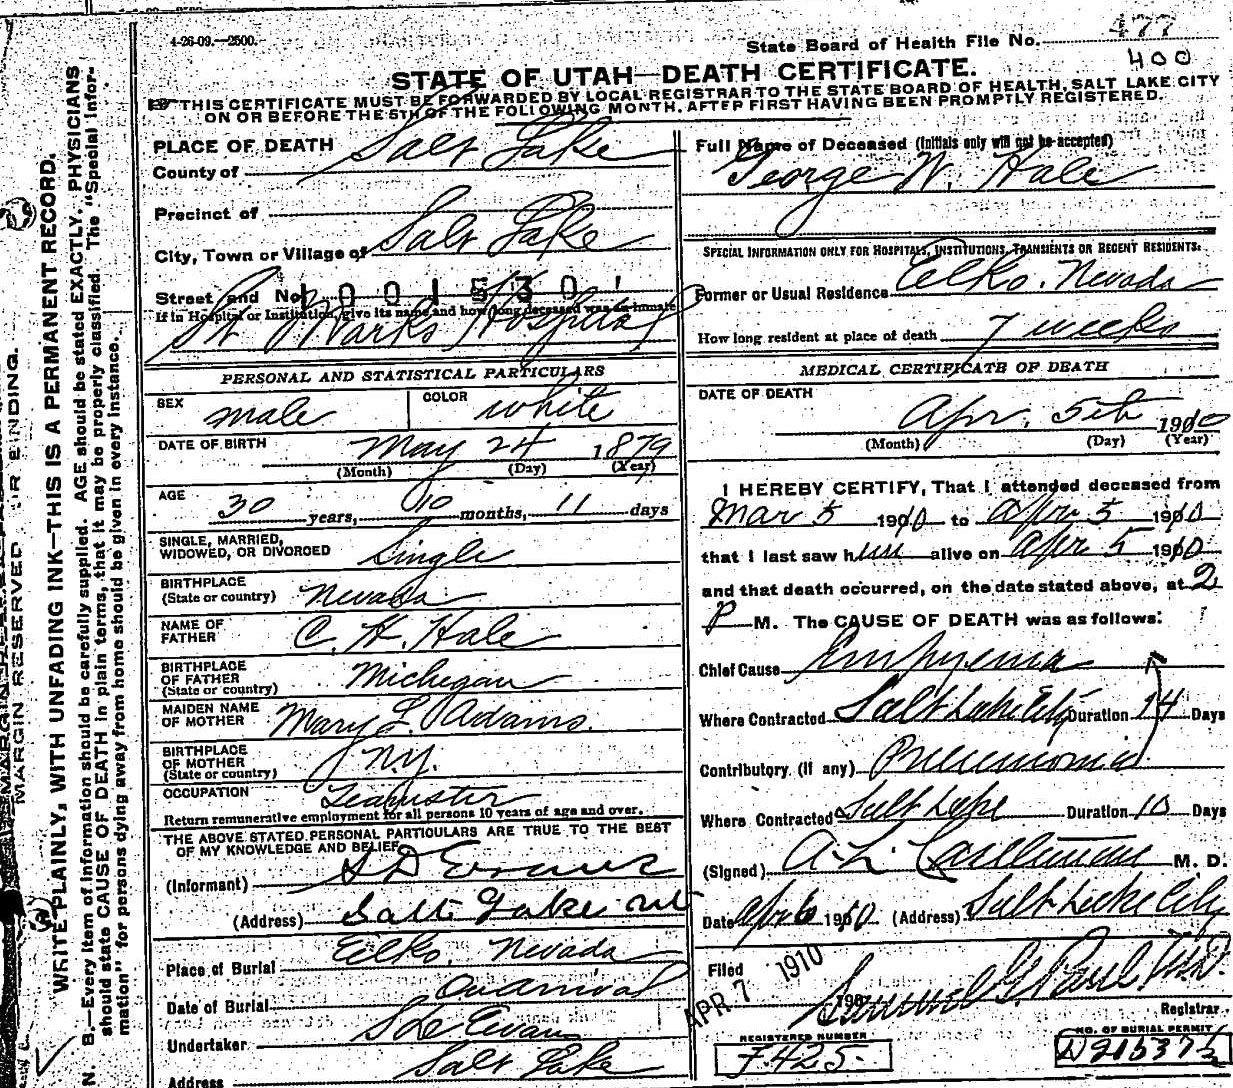 4-26-09.—2500.
State Board of Health File No. 477
400
STATE OF UTAH—DEATH CERTIFICATE.
THIS CERTIFICATE MUST BE FORWARDED BY LOCAL REGISTRAR TO THE STATE BOARD OF HEALTH, SALT LAKE CITY
ON OR BEFORE THE 5TH OF THE FOLLOWING MONTH, AFTER FIRST HAVING BEEN PROMPTLY REGISTERED.
MARGIN RESERVED FOR BINDING.
WRITE PLAINLY, WITH UNFADING INK—THIS IS A PERMANENT RECORD.
N. B.—Every item of information should be carefully supplied. AGE should be stated EXACTLY. PHYSICIANS
should state CAUSE OF DEATH in plain terms, that it may be properly classified. The "Special Infor-
mation" for persons dying away from home should be given in every instance.
PLACE OF DEATH
County of Salt Lake
Precinct of
City, Town or Village of Salt Lake
Street and No.
If in Hospital or Institution, give its name and how long deceased was an inmate
St Marks Hospital
PERSONAL AND STATISTICAL PARTICULARS
SEX male COLOR white
DATE OF BIRTH May 24 1879
(Month) (Day) (Year)
AGE 30 years, 10 months, 11 days
SINGLE, MARRIED,
WIDOWED, OR DIVORCED Single
BIRTHPLACE
(State or country) Nevada
NAME OF
FATHER C. H. Hale
BIRTHPLACE
OF FATHER
(State or country) Michigan
MAIDEN NAME
OF MOTHER Mary L. Adams.
BIRTHPLACE
OF MOTHER
(State or country) N.Y.
OCCUPATION Teamster
Return remunerative employment for all persons 10 years of age and over.
THE ABOVE STATED PERSONAL PARTICULARS ARE TRUE TO THE BEST
OF MY KNOWLEDGE AND BELIEF
(Informant) S D Evans
(Address) Salt Lake
Place of Burial Elko, Nevada
Date of Burial On arrival
Undertaker S D Evans
Address Salt Lake
Full Name of Deceased (Initials only will not be accepted)
George W. Hale
SPECIAL INFORMATION ONLY FOR HOSPITALS, INSTITUTIONS, TRANSIENTS OR RECENT RESIDENTS.
Former or Usual Residence Elko, Nevada
How long resident at place of death 7 weeks
MEDICAL CERTIFICATE OF DEATH
DATE OF DEATH
Apr. 5th 1910
(Month) (Day) (Year)
I HEREBY CERTIFY, That I attended deceased from
Mar 5 1910 to Apr 5 1910
that I last saw him alive on Apr 5 1910
and that death occurred, on the date stated above, at 2
P M. The CAUSE OF DEATH was as follows:
Chief Cause Empyema
Where Contracted Salt Lake City Duration 14 Days
Contributory (if any) Pneumonia
Where Contracted Salt Lake Duration 10 Days
(Signed) A. L. M. D.
Date Apr 6 1910 (Address) Salt Lake City
Filed APR 7 1910 190
Samuel G. Paul M.D.
Registrar
REGISTERED NUMBER
F.425.
NO. OF BURIAL PERMIT